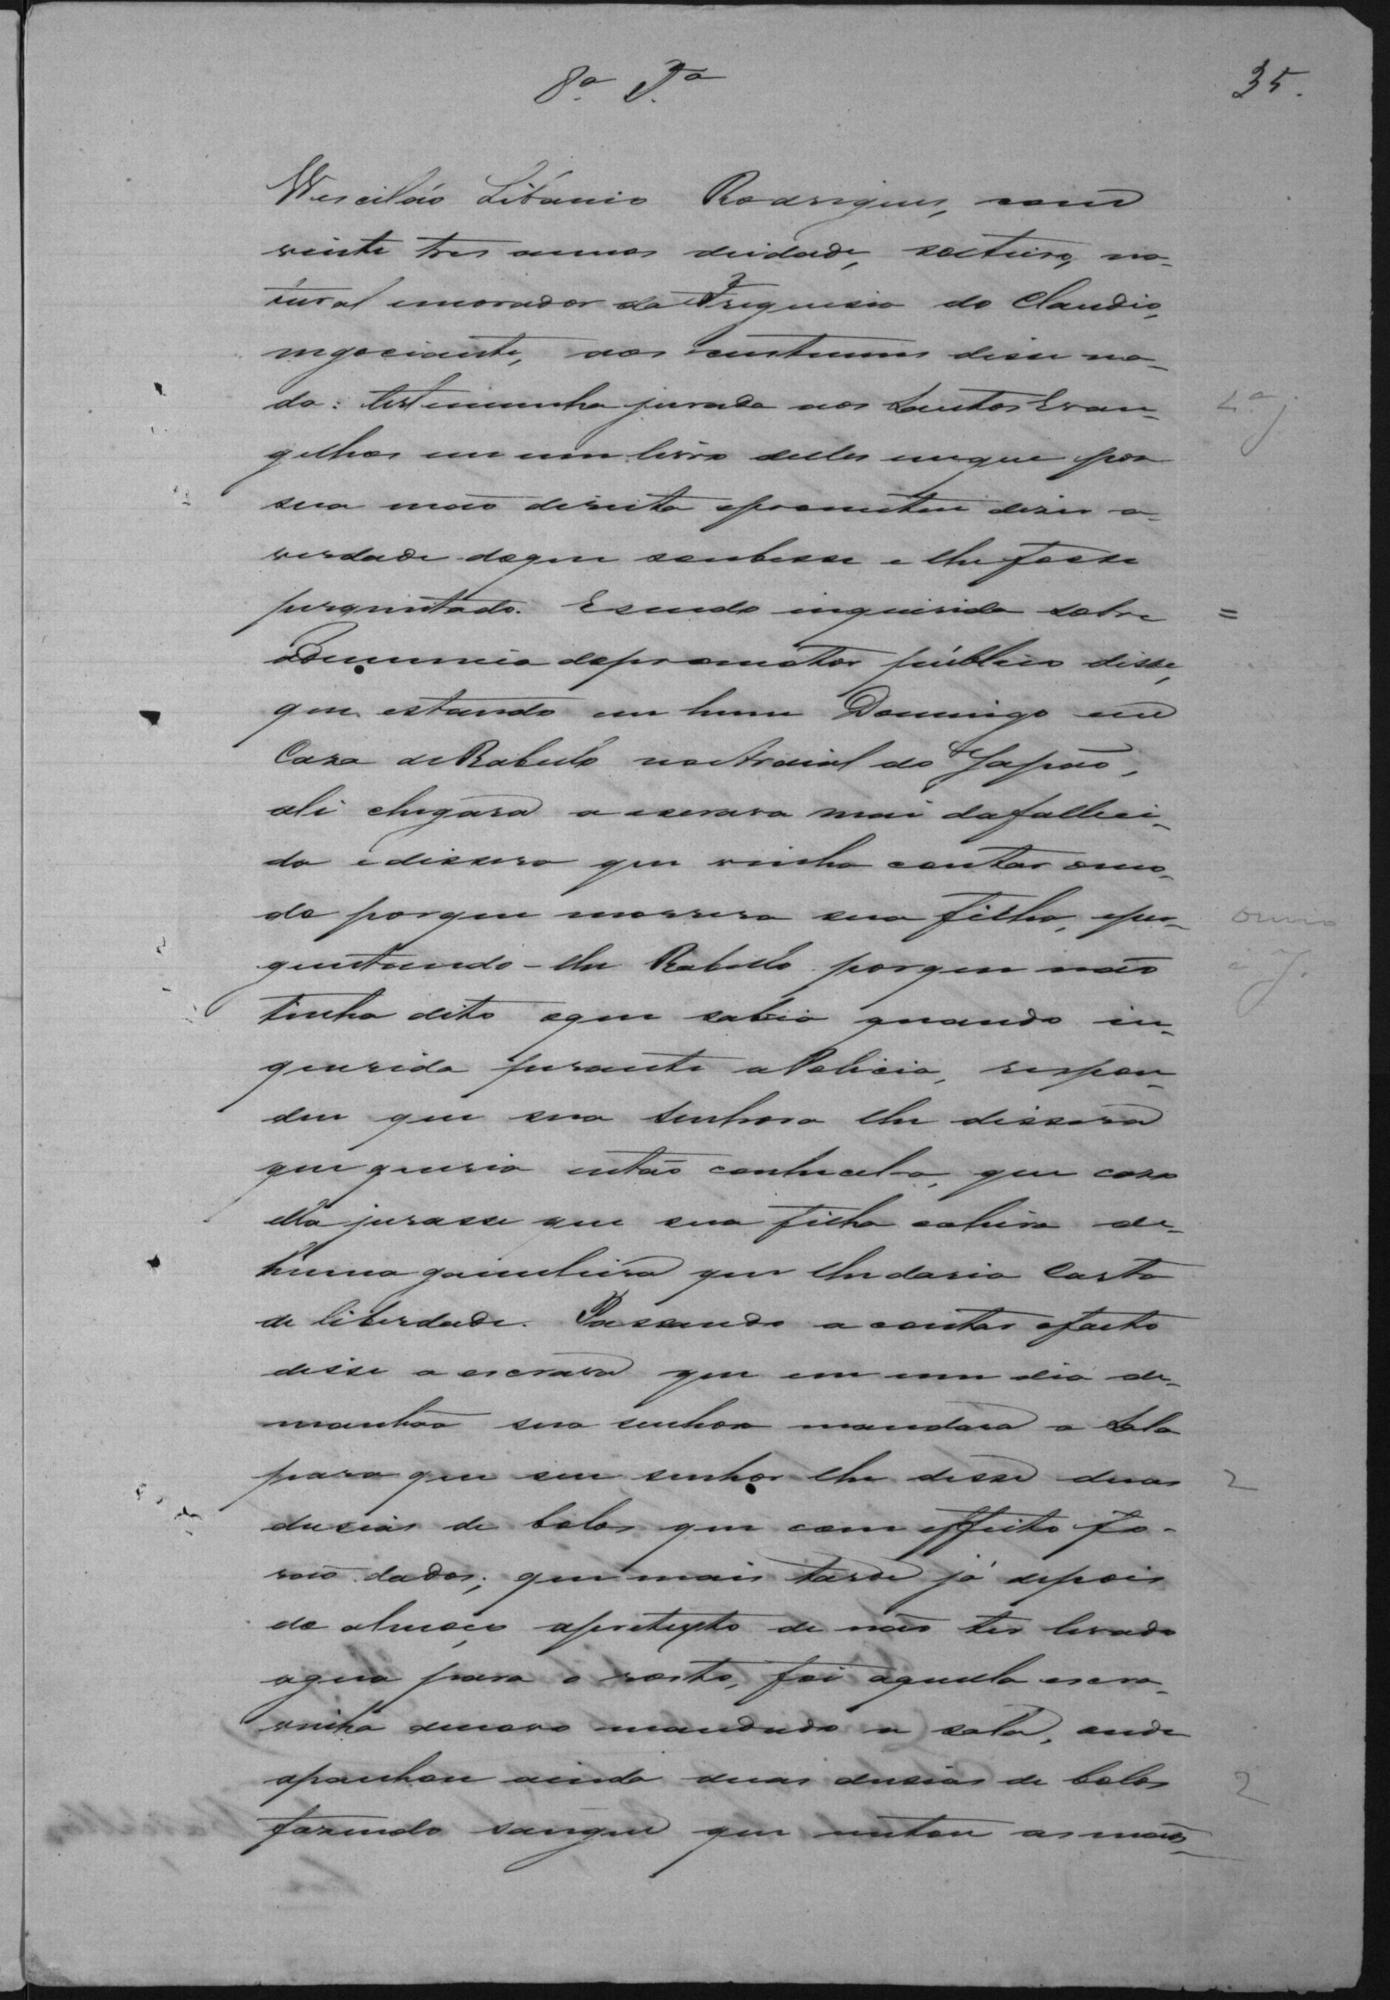 8ª Tª
35.
Libanio Rodrigues, com
vinte tres annos deidade, solteiro, na-
tural emorador da Freguesia do Claudio,
negociante, aos custumes disse na-
da: testemunha jurada aos Santos Evan-
gelhos em um livro delles emque pos
sua mão direita eprometeu diser a
verdade doque soubesse e lhe fosse
perguntado. Esendo inquirida sobre
adenuncia dopromotor publico disse,
que estando em hum Domingo em
Casa deRabello noArraial do Japão,
ali chegara a escrava mai dafalleci-
da edissera que vinha contar omo-
do porque morrera sua filha, eper-
guntando-lhe Rabello porque não
tinha dito oque sabia quando in-
querida perante aPolicia, respon-
deu que sua Senhora lhe dissera
que queria então conhecela, que caso
ella jurasse que sua filha cahira de
huma gamelleira que lhedaria Carta
de liberdade. Passando a contar ofacto
disse a escrava que em um dia de
manhãa sua senhora mandara a Sala
para que seu senhor lhe desse duas
dusias de bolos que com effeito fo-
rão dados; que mais tarde já depois
do almoço apretexto de não ter levado
agua para o rosto, foi aquella escra-
vinha denovo mandada a sala, onde
apanhou ainda duas dusias de bolos
fazendo sangue que untou as mãos
4ª J
=
ouvio
a J.
2
2